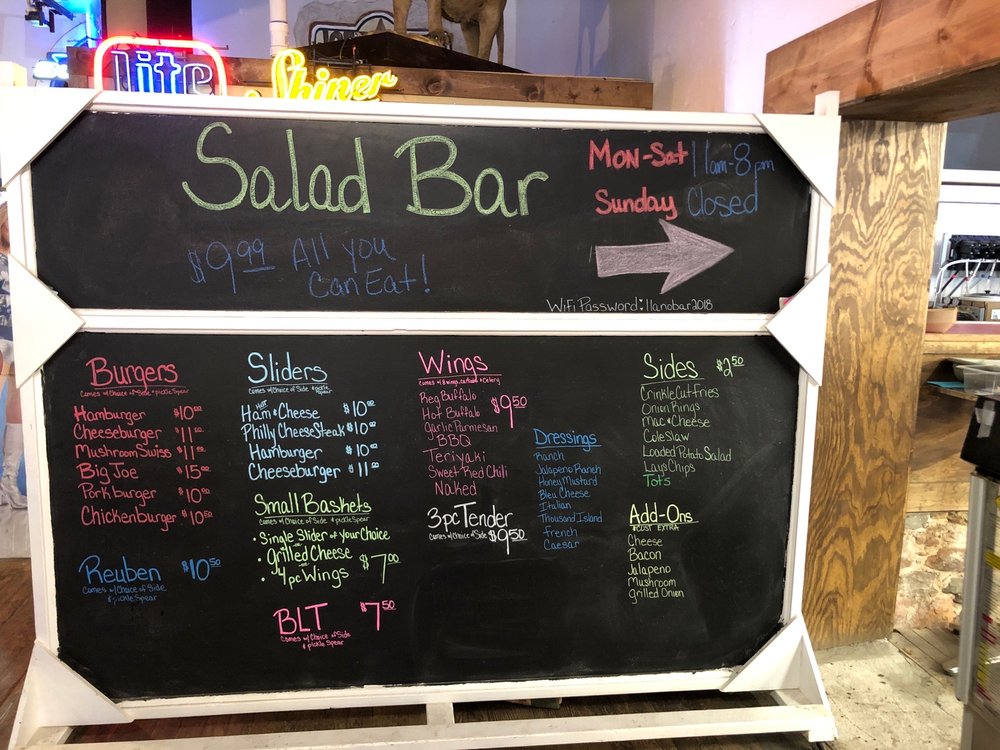 lite
Shiner
Salad Bar
$9.99 All you
Can Eat!
Mon-Sat 11am-8pm
Sunday Closed
WiFi Password: llanobar2018
Burgers
comes w/ Choice of Side & pickle Spear
Hamburger $10.00
Cheeseburger $11.00
Mushroom Swiss $11.00
Big Joe $15.00
Porkburger $10.00
Chickenburger $10.50
Reuben $10.50
Comes w/ Choice of Side
& pickle Spear
Sliders
comes w/ Choice of Side & pickle Spear
Hot
Ham & Cheese $10.00
Philly CheeseSteak $10.00
Hamburger $10.00
Cheeseburger $11.00
Small Baskets
comes w/ Choice of Side & pickle Spear
• Single Slider of your Choice
or
• Grilled Cheese
or
• 4pc Wings $7.00
BLT $7.50
Comes w/ Choice of Side
& pickle Spear
Wings
comes w/ 8 wings, & Celery
Reg Buffalo
Hot Buffalo $9.50
Garlic Parmesan
BBQ
Teriyaki
Sweet Red Chili
Naked
3pc Tender
comes w/ Choice of Side $9.50
Dressings
Ranch
Jalapeno Ranch
Honey Mustard
Bleu Cheese
Italian
Thousand Island
French
Caesar
Sides $2.50
Crinkle Cut Fries
Onion Rings
Mac & Cheese
Cole Slaw
Loaded Potato Salad
Lays Chips
Tots
Add-Ons
*COST EXTRA
Cheese
Bacon
Jalapeno
Mushroom
grilled Onion